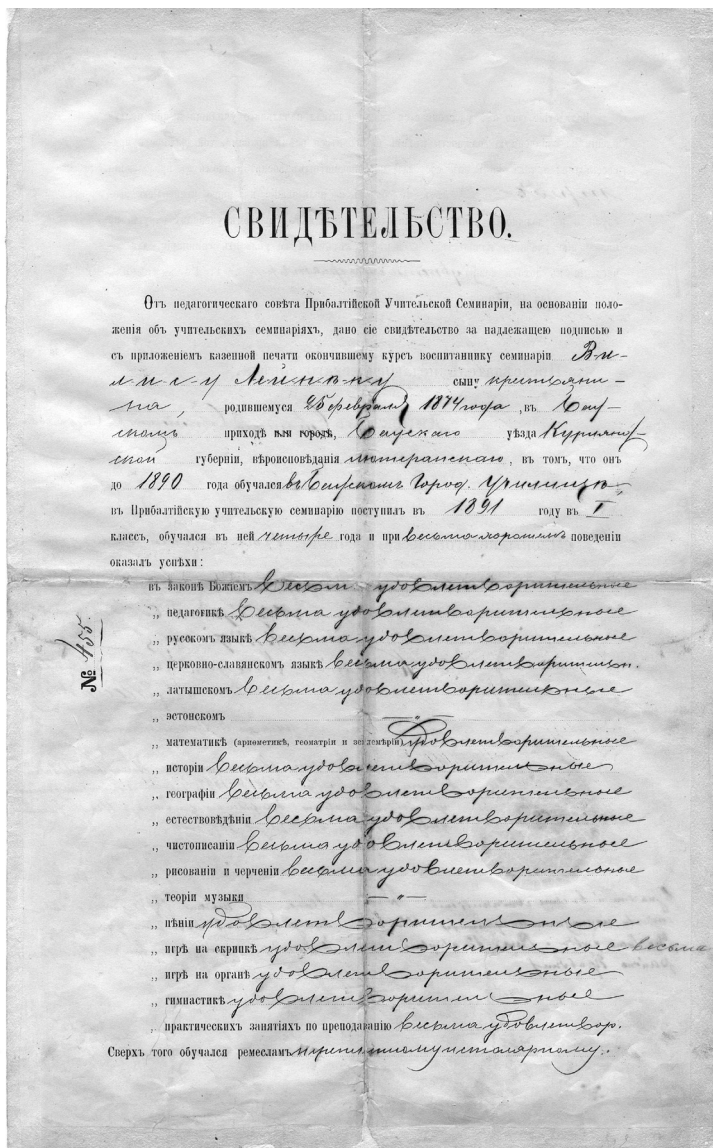 СВИДѢТЕЛЬСТВО.
Отъ педагогическаго совѣта Прибалтійской Учительской Семинаріи, на основаніи поло-
женія объ учительскихъ семинаріяхъ, дано сіе свидѣтельство за надлежащею подписью и
съ приложеніемъ казенной печати окончившему курсъ воспитаннику семинаріи Ви-
лису сыну крестьяни-
на, родившемуся 25 февраля 1874 года, въ Бау-
скомъ приходѣ или городѣ, Баускаго уѣзда Курлянд-
ской губерніи, вѣроисповѣданія лютеранскаго, въ томъ, что онъ
до 1890 года обучался въ Баускомъ Город. Училищѣ,
въ Прибалтійскую учительскую семинарію поступилъ въ 1891 году въ I
классъ, обучался въ ней четыре года и при весьма хорошемъ поведеніи
оказалъ успѣхи:
въ законѣ Божіемъ весьма удовлетворительные
„ педагогикѣ весьма удовлетворительные
„ русскомъ языкѣ весьма удовлетворительные
„ церковно-славянскомъ языкѣ весьма удовлетворительн.
„ латышскомъ весьма удовлетворительные
„ эстонскомъ — „ —
„ математикѣ (ариөметикѣ, геометріи и землемѣріи) удовлетворительные
„ исторіи весьма удовлетворительные
„ географіи весьма удовлетворительные
„ естествовѣдѣніи весьма удовлетворительные
„ чистописаніи весьма удовлетворительные
„ рисованіи и черченіи весьма удовлетворительные
„ теоріи музыки — „ —
„ пѣніи удовлетворительные
„ игрѣ на скрипкѣ удовлетворительные весьма
„ игрѣ на органѣ удовлетворительные
„ гимнастикѣ удовлетворительные
„ практическихъ занятіяхъ по преподаванію весьма удовлетвор.
Сверхъ того обучался ремесламъ переплетному и столярному.
№ 455.